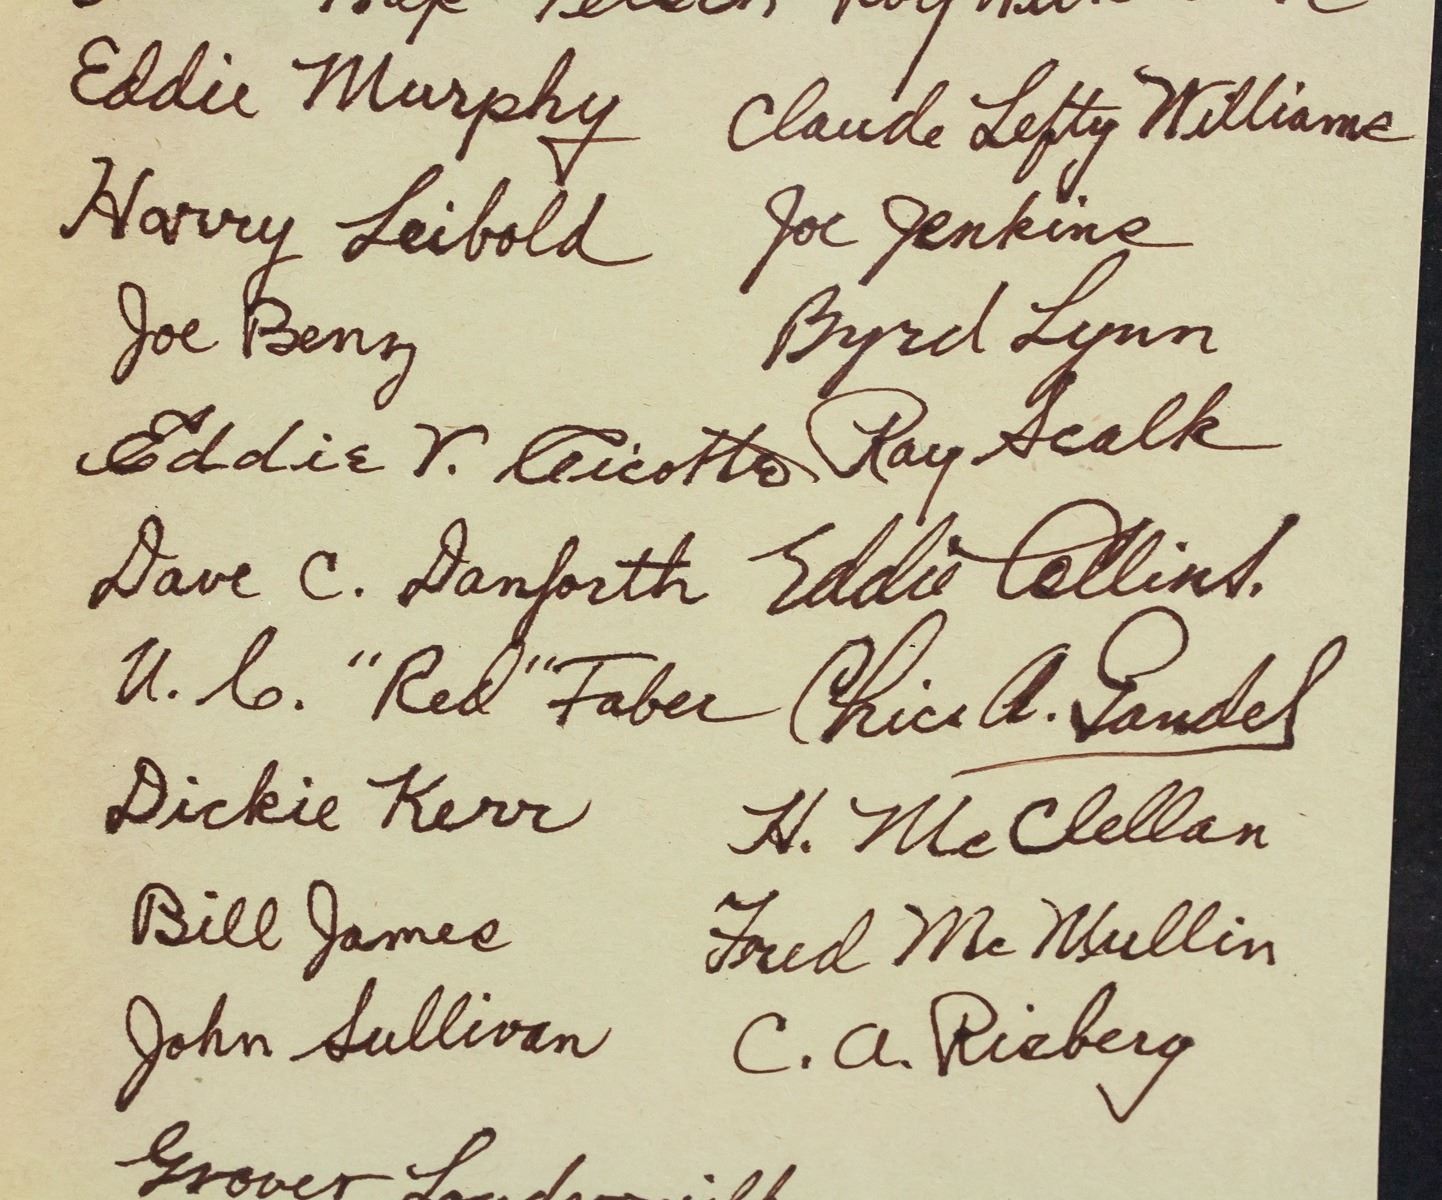 Eddie Murphy
Claude Lefty Williams
Harry Leibold
Joe Jenkins
Joe Benz
Byrd Lynn
Eddie V. Cicotte
Ray Scalk
Dave C. Danforth
Eddie Collins.
U. C. "Red" Faber
Chick A. Gandel
Dickie Kerr
H. McClellan
Bill James
Fred McMullin
John Sullivan
C. A. Risberg
Grover